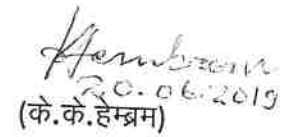 KHembrom
20.06.2019
(के.के.हेम्ब्रम)